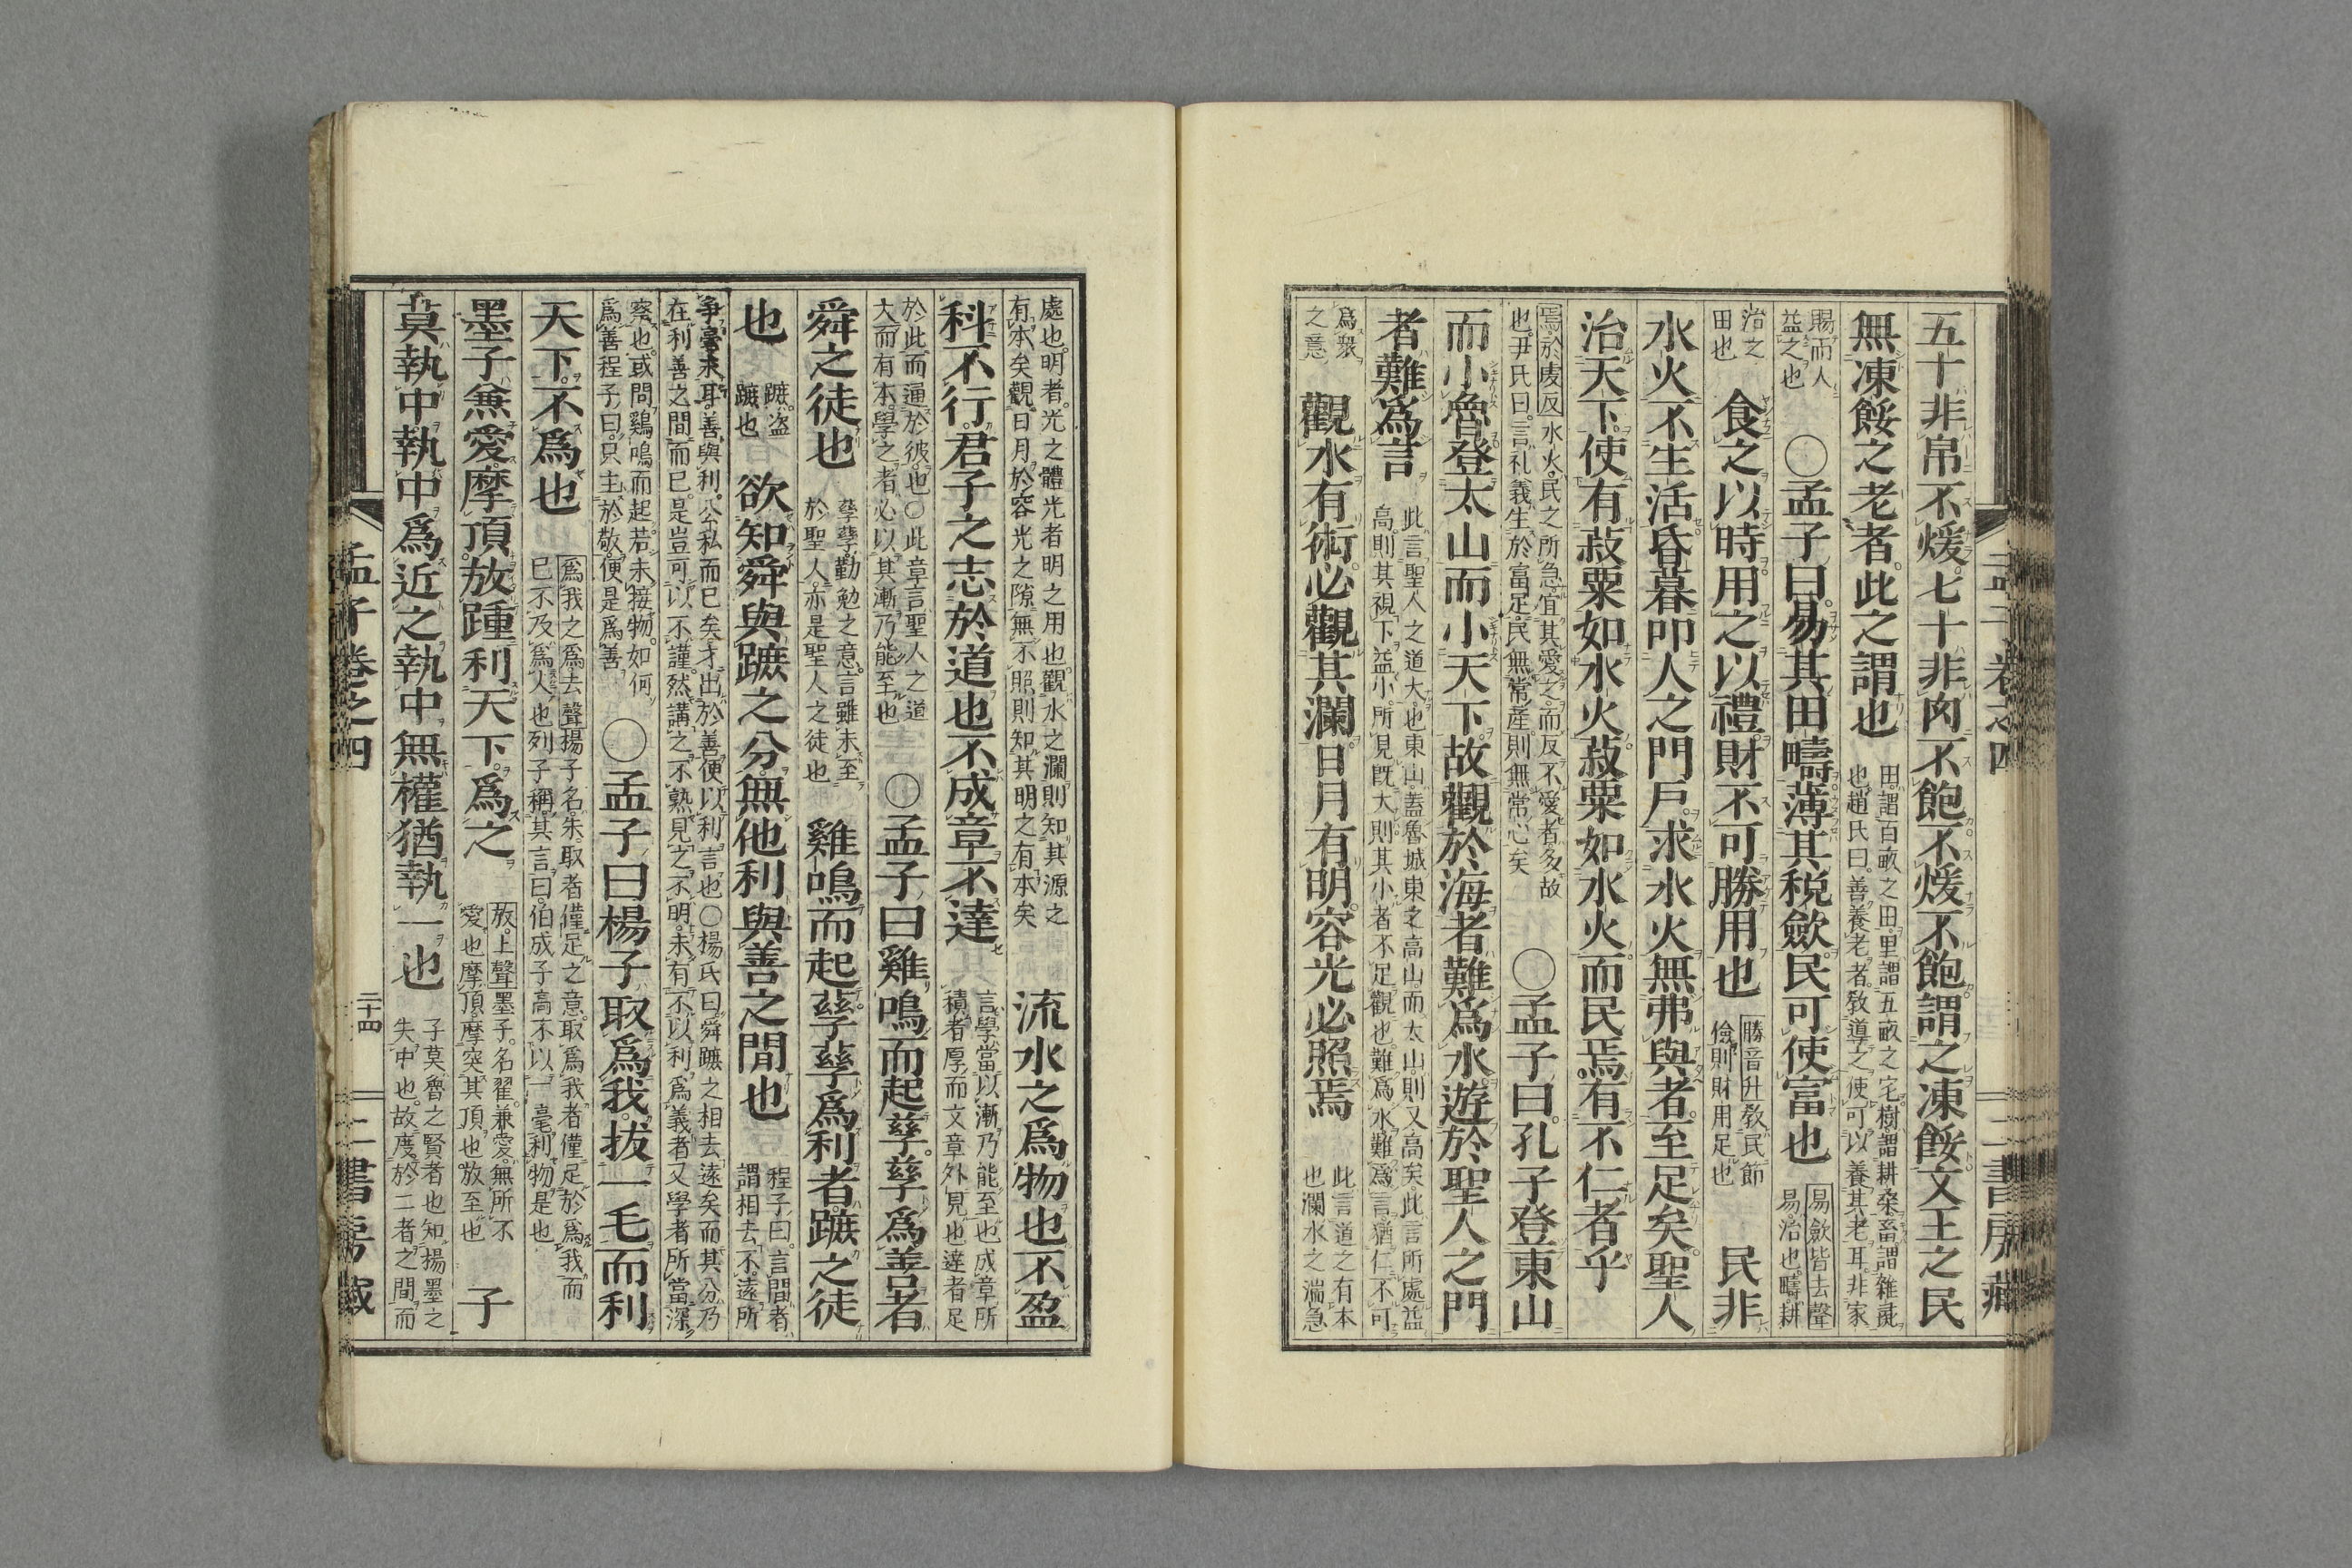 孟子卷之四
二書房藏
五十非帛不煖七十非肉不飽不煖不飽謂之凍餒文王之民
無凍餒之老者此之謂也
田謂百畝之田里謂五畝之宅樹謂耕桑畜謂雞彘
也趙氏曰善養老者敎導之使可以養其老耳非家
賜而人
益之也
〇孟子曰易其田疇薄其稅斂民可使富也
易斂皆去聲
易治也疇耕
治之
田也
食之以時用之以禮財不可勝用也
勝音升敎民節
儉則財用足也
民非
水火不生活昏暮叩人之門戶求水火無弗與者至足矣聖人
治天下使有菽粟如水火菽粟如水火而民焉有不仁者乎
焉於虔反水火民之所急宜其愛之而反不愛者多故
也尹氏曰言礼義生於富足民無常產則無常心矣
〇孟子曰孔子登東山
而小魯登太山而小天下故觀於海者難爲水遊於聖人之門
者難爲言
此言聖人之道大也東山蓋魯城東之高山而太山則又高矣此言所處益
高則其視下益小所見既大則其小者不足觀也難爲水難爲言猶仁不可
爲衆
之意
觀水有術必觀其瀾日月有明容光必照焉
此言道之有本
也瀾水之湍急
處也明者光之體光者明之用也觀水之瀾則知其源之
有本矣觀日月於容光之隙無不照則知其明之有本矣
流水之爲物也不盈
科不行君子之志於道也不成章不達
言學當以漸乃能至也成章所
積者厚而文章外見也達者足
於此而通於彼也〇此章言聖人之道
大而有本學之者必以其漸乃能至也
〇孟子曰雞鳴而起孳孳爲善者
舜之徒也
孳孳勤勉之意言雖未至
於聖人亦是聖人之徒也
雞鳴而起孳孳爲利者蹠之徒
也
蹠盗
蹠也
欲知舜與蹠之分無他利與善之間也
程子曰言間者
謂相去不遠所
爭毫末耳善與利公私而已矣才出於善便以利言也〇楊氏曰舜蹠之相去遠矣而其分乃
在利善之間而已是豈可以不謹然講之不熟見之不明未有不以利爲義者又學者所當深
察也或問鷄鳴而起若未接物如何
爲善程子曰只主於敬便是爲善
〇孟子曰楊子取爲我拔一毛而利
天下不爲也
爲我之爲去聲揚子名朱取者僅足之意取爲我者僅足於爲我而
已不及爲人也列子稱其言曰伯成子高不以一毫利物是也
墨子兼愛摩頂放踵利天下爲之
放上聲墨子名翟兼愛無所不
愛也摩頂摩突其頂也放至也
子
莫執中執中爲近之執中無權猶執一也
子莫魯之賢者也知揚墨之
失中也故度於二者之間而
孟子卷之四
二十四
二書房藏